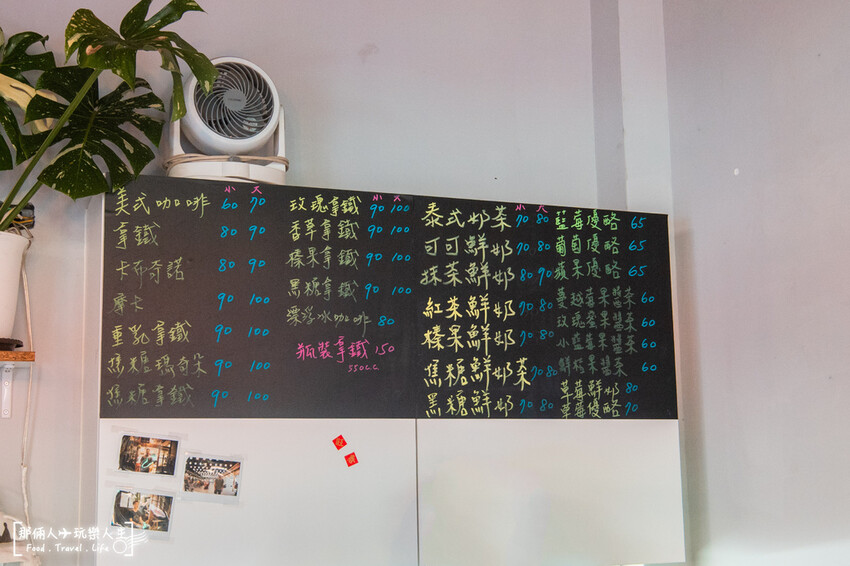 小 大
美式咖啡 60 70
拿鐵 80 90
卡布奇諾 80 90
摩卡 90 100
重乳拿鐵 90 100
焦糖瑪奇朵 90 100
焦糖拿鐵 90 100
小 大
玫瑰拿鐵 90 100
香草拿鐵 90 100
榛果拿鐵 90 100
黑糖拿鐵 90 100
漂浮冰咖啡 80
狐裝拿鐵 150
550cc
小 大
泰式奶茶 70 80
可可鮮奶 70 80
抹茶鮮奶 80 90
紅茶鮮奶 70 80
榛果鮮奶 70 80
焦糖鮮奶茶 70 80
黑糖鮮奶 70 80
藍莓優酪 65
葡萄優酪 65
蘋果優酪 65
蔓越莓果醬茶 60
玫瑰蜜果醬茶 60
小藍莓果醬茶 60
鮮柚果醬茶 60
草莓鮮奶 80
草莓優酪 70
那倆人玩樂人生
Food . Travel . Life